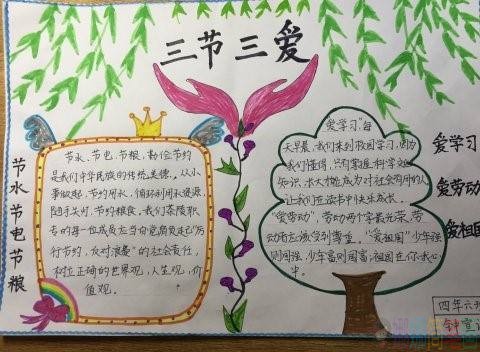 三节三爱
节水节电节粮
节水、节电、节粮，勤俭节约
是我们中华民族的传统美德。从小
事做起，节约用水，循环利用水资源，
随手关灯，节约粮食，我们
专的每一位成员应当自觉肩负起“厉
行节约，反对浪费”的社会责任，
树立正确的世界观，人生观，价
值观。
“爱学习”每
天早晨，我们来到校园学习，因为
我们懂得，只有掌握科学文
知识，长大才能成为对社会有用的人
让我们在读书中快乐成长。
“爱劳动”，劳动两个字最光荣，劳
动用应该受到尊重。“爱祖国”少年强
则国强，少年富则国富，祖国在你我心
中。
爱学习
爱劳动
爱祖国
四年六班
钟宣